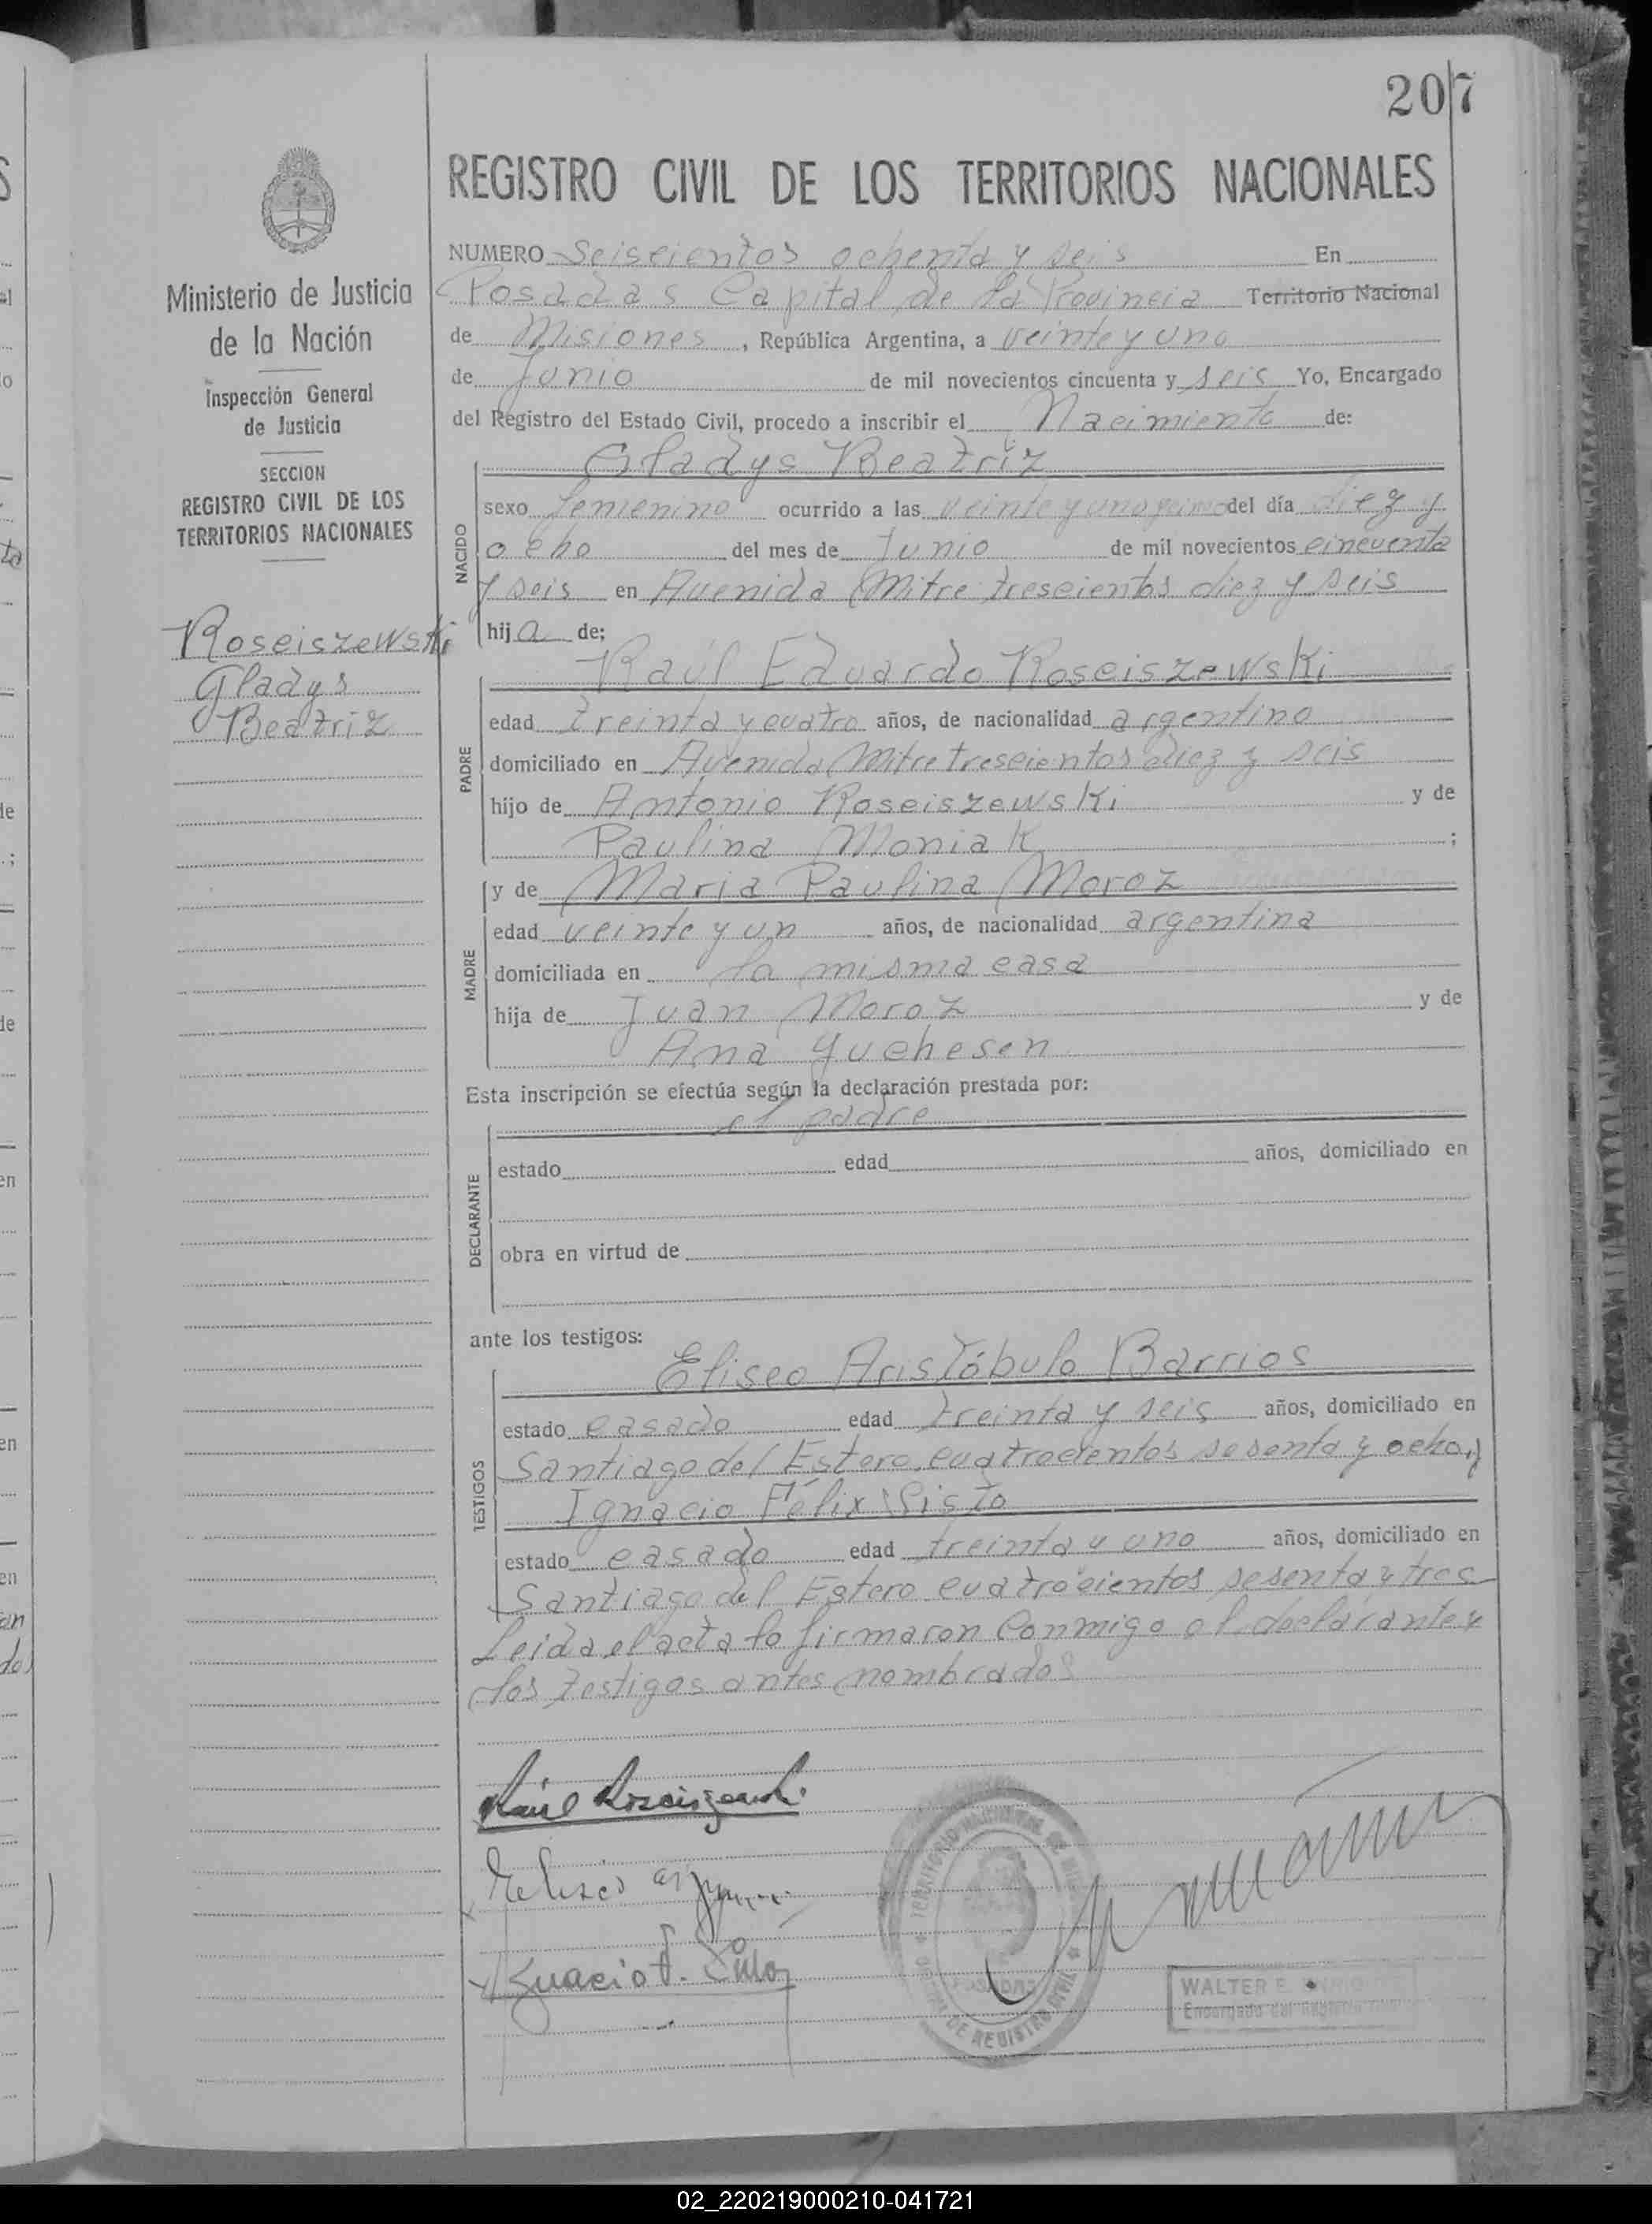 207
REGISTRO CIVIL DE LOS TERRITORIOS NACIONALES
Ministerio de Justicia
de la Nación
Inspección General
de Justicia
SECCION
REGISTRO CIVIL DE LOS
TERRITORIOS NACIONALES
Roseiszewski
Gladys
Beatriz
NUMERO Seiscientos ochenta y seis En
Posadas Capital de la Provincia Territorio Nacional
de Misiones, República Argentina, a veinte y uno
de Junio de mil novecientos cincuenta y seis Yo, Encargado
del Registro del Estado Civil, procedo a inscribir el Nacimiento de:
Gladys Beatriz
NACIDO
sexo femenino ocurrido a las veinte y una del día diez y
ocho del mes de Junio de mil novecientos cincuenta
y seis en Avenida Mitre trescientos diez y seis
hija de:
Raúl Eduardo Roseiszewski
PADRE
edad treinta y cuatro años, de nacionalidad argentino
domiciliado en Avenida Mitre trescientos diez y seis
hijo de Antonio Roseiszewski y de
Paulina Moniak ;
y de Maria Paulina Moroz
MADRE
edad veinte y un años, de nacionalidad argentina
domiciliada en la misma casa
hija de Juan Moroz y de
Ana Yuchesen
Esta inscripción se efectúa según la declaración prestada por:
el padre
DECLARANTE
estado edad años, domiciliado en
obra en virtud de
ante los testigos:
Eliseo Aristóbulo Barrios
TESTIGOS
estado casado edad treinta y seis años, domiciliado en
Santiago del Estero cuatrocientos sesenta y ocho, y
Ignacio Félix Sisto
estado casado edad treinta y uno años, domiciliado en
Santiago del Estero cuatrocientos sesenta y tres
Leida el acta la firmaron conmigo el declarante y
los testigos antes nombrados
Raúl Roseiszewski
Ignacio F. Sisto
WALTER E.
Encargado del Registro Civil
02_220219000210-041721